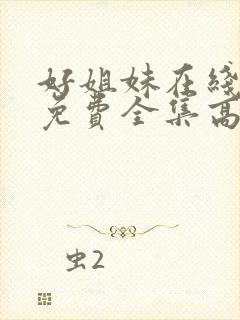 好姐妹在线
免费全集高
虫2